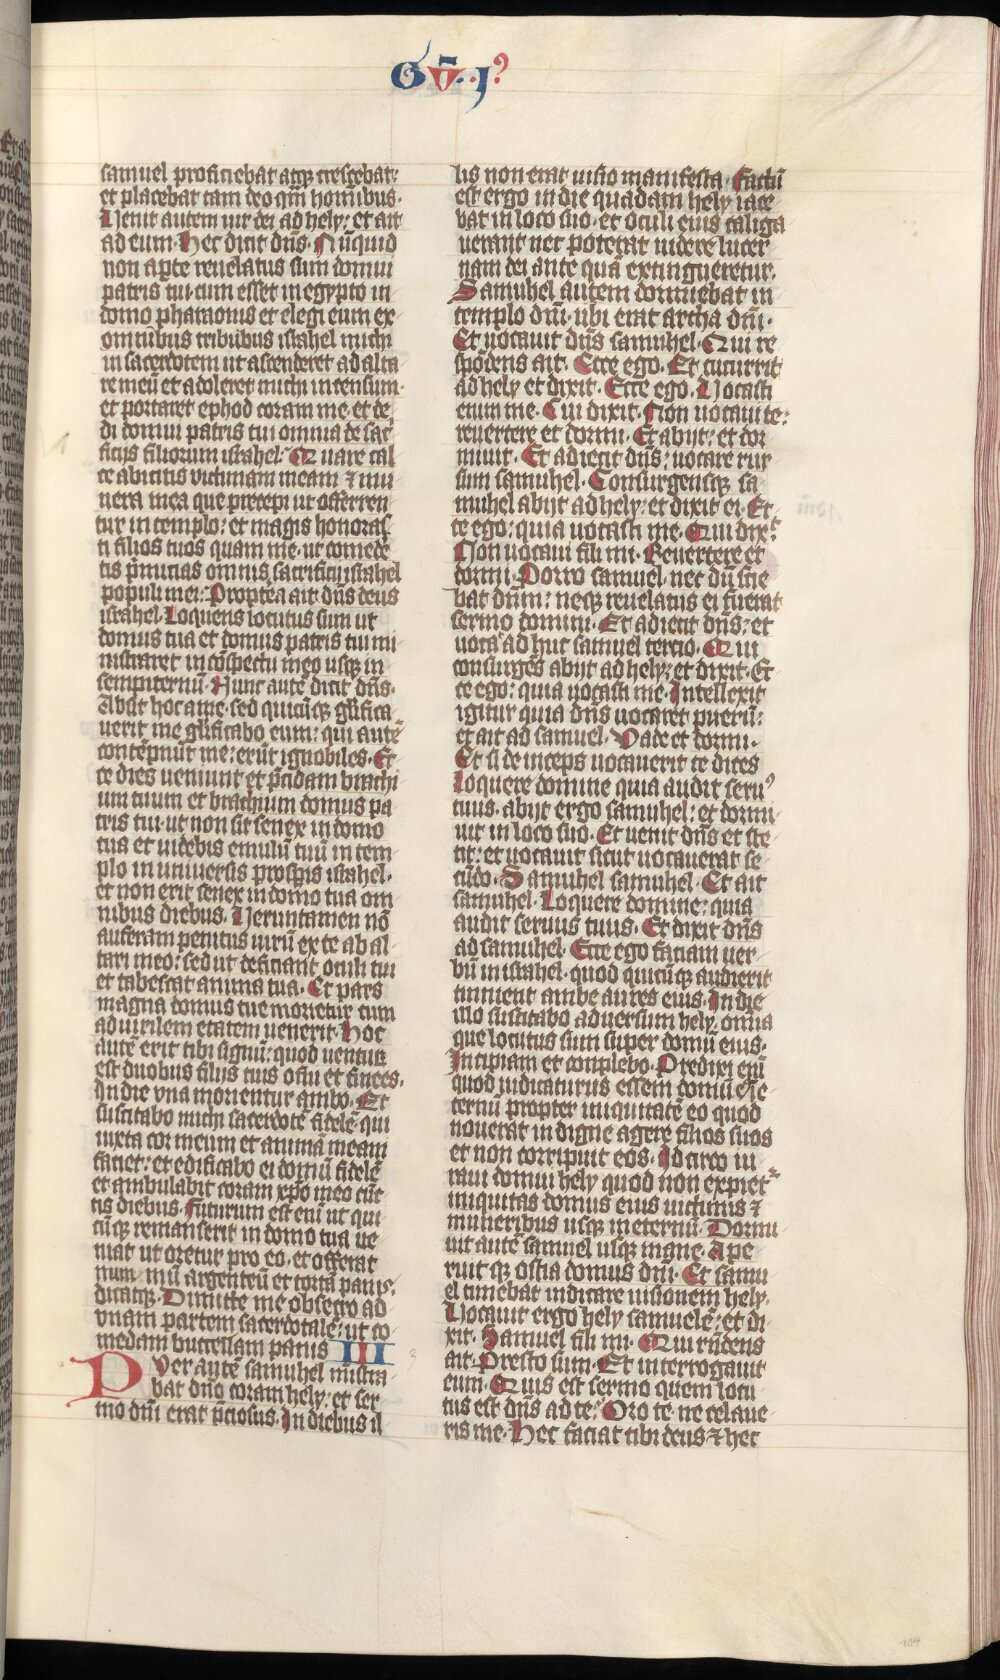 samuel proficiebat atqꝫ crescebat:
et placebat tam deo qm̄ hom̄ibus.
Uenit autem uir dei ad hely: et ait
ad eum. Hec dicit dn̄s. Nūquid
non apte reuelatus sum domui
patris tui. cum esset in egypto in
domo pharaonis et elegi eum ex
omnibus tribubus israhel michi
in sacerdotem ut ascenderet ad alta
re meū et adoleret michi incensum.
et portaret ephod coram me. et de
di domui patris tui omnia de sac̄
ficijs filiorum israhel. Quare cal
ce abicitis victimam meam ⁊ mu
nera mea que precepi ut offerren
tur in templo: et magis honoras
ti filios tuos quam me. ut comede
tis p̄mitias omnis sacrificij israhel
populi mei. Propterea ait dn̄s deus
israhel. Loquens locutus sum ut
domus tua et domus patris tui mi
nistraret in cōspectu meo usqꝫ in
sempiternū. Nunc autē dicit dn̄s.
Absit hoc a me. sed quicūqꝫ gl̄ifica
uerit me gl̄ificabo eum: qui autē
contēpnūt me: erūt ignobiles. Ec
ce dies veniunt et p̄cidam brachi
um tuum et brachium domus pa
tris tui. ut non sit senex in domo
tua et uidebis emulū tuū in tem
plo in uniuersis prosp̄is israhel.
et non erit senex in domo tua om
nibus diebus. Ueruntamen nō
auferam penitus uirū ex te ab al
tari meo: sed ut deficiant oculi tui
et tabescat anima tua. Et pars
magna domus tue morietur cum
ad uirilem etatem uenerit. Hoc
autē erit tibi signū: quod uenturū
est duobus filijs tuis ofni et finees.
In die vna morientur ambo. Et
suscitabo michi sacerdotē fidelē qui
iuxta cor meum et animā meam
faciet: et edificabo ei domū fidelē
et ambulabit coram xp̄o meo cūc
tis diebus. Futurum est enī ut qui
cūqꝫ remanserit in domo tua ue
niat ut oretur pro eo. et offerat
num̄mū argenteū et tortā panis.
dicatqꝫ. Dimitte me obsecro ad
vnam partem sacerdotalē: ut co
medam buccellam panis III
Puer autē samuhel mīstra
bat dn̄o coram hely. et ser
mo dn̄i erat p̄ciosus. In diebus il
lis non erat uisio manifesta. Factū
est ergo in die quadam hely iace
bat in loco suo. et oculi eius caliga
uerant nec poterat uidere lucer
nam dei ante quā extingueretur.
Samuhel autem dormiebat in
templo dn̄i. ubi erat archa dn̄i.
Et uocauit dn̄s samuhel. Qui re
spōdens ait. Ecce ego. Et cucurrit
ad hely et dixit. Ecce ego. Uocasti
enim me. Qui dixit. Non uocaui te:
reuertere et dormi. Et abijt: et dor
miuit. Et adiecit dn̄s: uocare rur
sum samuhel. Consurgensqꝫ sa
muhel abijt ad hely: et dixit ei. Ec
ce ego: quia uocasti me. Qui dixit
Non uocaui fili mi. Reuertere et
dormi. Porro samuel nec dū scie
bat dn̄m: neqꝫ reuelatus ei fuerat
sermo domini. Et adiecit dn̄s: et
uocaꝰ ad huc samuel tercio. Qui
consurgēs abijt ad hely: et dixit. Ec
ce ego: quia uocasti me. Intellexit
igitur quia dn̄s uocaret puerū:
et ait ad samuel. Vade et dormi.
Et si deinceps uocauerit te dices
Loquere domine quia audit seruꝰ
tuus. abijt ergo samuhel: et dormi
uit in loco suo. Et uenit dn̄s et ste
tit: et uocauit sicut uocauerat se
cūdo. Samuhel samuhel. Et ait
samuhel. Loquere domine: quia
audit seruus tuus. Et dixit dn̄s
ad samuhel. Ecce ego faciam uer
bū in israhel. quod quicūqꝫ audierit
tinnient ambe aures eius. In die
illo suscitabo aduersum hely. omnia
que locutus sum super domū eius.
Incipiam et conplebo. Predixi enī
quod iudicaturus essem domū eiꝰ e
ternū propter iniquitatē eo quod
nouerat indigne agere filios suos
et non corripuit eos. Idcirco iu
raui domui hely quod non expiet̉
iniquitas domus eius uictimis ⁊
muneribus usqꝫ in eternū. Dormi
uit autē samuel usqꝫ mane. Ape
ruit qꝫ ostia domus dn̄i. Et samu
el timebat indicare uisionem hely.
Uocauit ergo hely samuelē: et di
xit. Samuel fili mi. Qui rn̄dens
ait. Presto sum. Et interrogauit
eum. Quis est sermo quem locu
tus est dn̄s ad te. Oro te ne celaue
ris me. Hec faciat tibi deus ⁊ hec